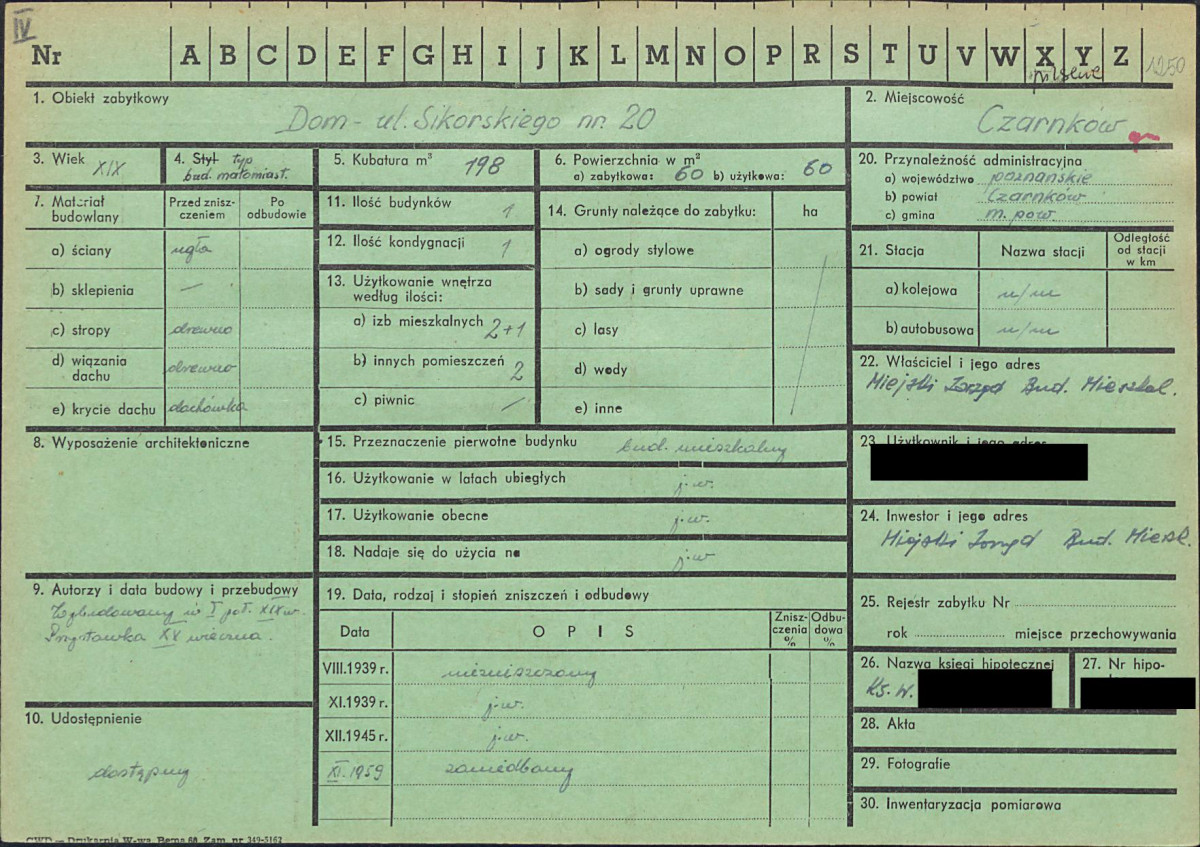 IV
Nr A B C D E F G H I J K L M N O P R S T U V W X Y Z 1250
1. Obiekt zabytkowy
Dom - ul. Sikorskiego nr. 20
2. Miejscowość
Czarnków
3. Wiek XIX
4. Styl typ
bud. małomiast.
5. Kubatura m³ 198
6. Powierzchnia w m²
a) zabytkowa: 60 b) użytkowa: 60
20. Przynależność administracyjna
a) województwo poznańskie
b) powiat Czarnków
c) gmina m. pow.
7. Materiał budowlany
Przed zniszczeniem
Po odbudowie
a) ściany cegła
b) sklepienia —
c) stropy drewno
d) wiązania dachu drewno
e) krycie dachu dachówka
11. Ilość budynków 1
12. Ilość kondygnacji 1
13. Użytkowanie wnętrza
według ilości:
a) izb mieszkalnych 2+1
b) innych pomieszczeń 2
c) piwnic /
14. Grunty należące do zabytku: ha
a) ogrody stylowe
b) sady i grunty uprawne
c) lasy
d) wody
e) inne
21. Stacja
Nazwa stacji
Odległość od stacji w km
a) kolejowa n/m
b) autobusowa n/m
22. Właściciel i jego adres
Miejski Zarząd Bud. Mieszkal.
8. Wyposażenie architektoniczne
15. Przeznaczenie pierwotne budynku bud. mieszkalny
16. Użytkowanie w latach ubiegłych j.w.
17. Użytkowanie obecne j.w.
18. Nadaje się do użycia na j.w
23. Użytkownik i jego adres
24. Inwestor i jego adres
Miejski Zarząd Bud. Mieszk.
9. Autorzy i data budowy i przebudowy
Wybudowany w I poł. XIX w.
Przystawka XX wieczna.
19. Data, rodzaj i stopień zniszczeń i odbudowy
Data
OPIS
Zniszczenia %
Odbudowa %
VIII.1939 r. niezniszczony
XI.1939 r. j.w.
XII.1945 r. j.w.
XI.1959 zaniedbany
25. Rejestr zabytku Nr
rok miejsce przechowywania
26. Nazwa księgi hipotecznej
Ks. W.
27. Nr hipo-
10. Udostępnienie
dostępny
28. Akta
29. Fotografie
30. Inwentaryzacja pomiarowa
CWD — Drukarnia W-wa, Berna 60 Zam. nr 349-5162